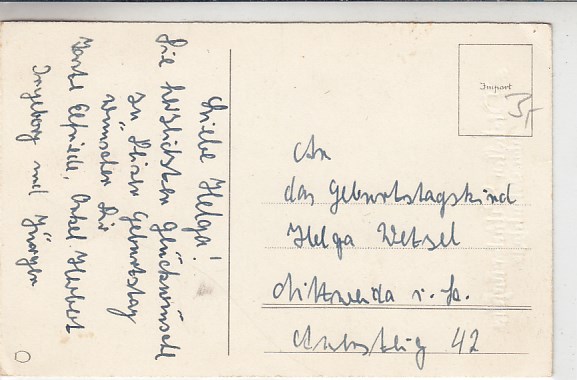 Liebe Helga!
Die herzlichsten Glückwünsche
zu Deinem Geburtstag
wünschen Dir
Tante Elfriede, Onkel Herbert
Ingeborg und Jürgen
Import
An
das Geburtstagskind
Helga Wetzel
Mittweida i. Sa.
42